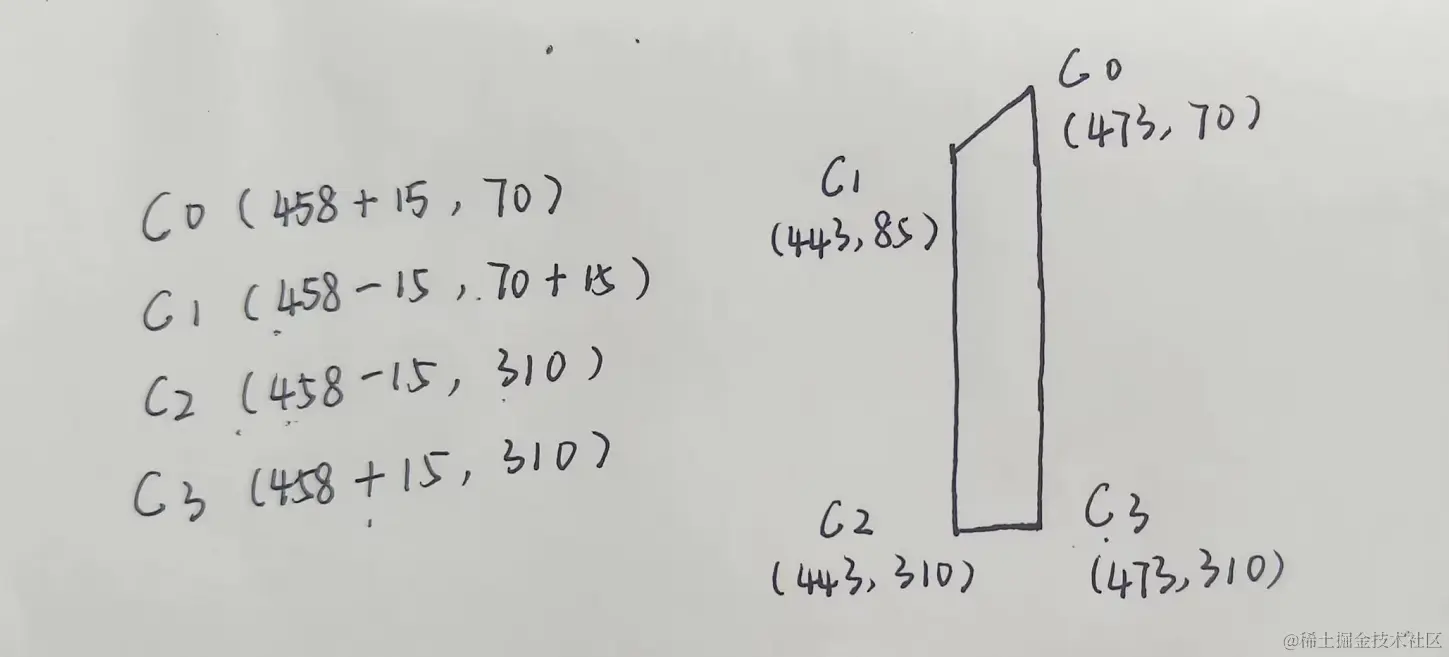 C0 (458+15, 70)
C1 (458-15, 70+15)
C2 (458-15, 310)
C3 (458+15, 310)
C0
(473, 70)
C1
(443, 85)
C2
(443, 310)
C3
(473, 310)
@稀土掘金技术社区